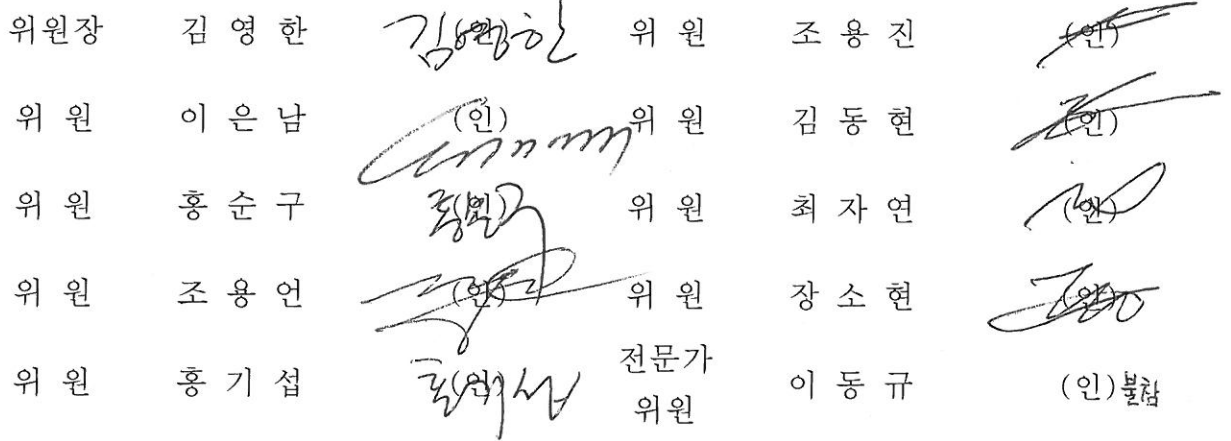 위원장 김 영 한 (인) 김영한 위 원 조 용 진 (인)
위 원 이 은 남 (인) 위 원 김 동 현 (인)
위 원 홍 순 구 (인) 위 원 최 자 연 (인)
위 원 조 용 언 (인) 위 원 장 소 현 (인)
위 원 홍 기 섭 (인) 전문가 위원 이 동 규 (인) 불참